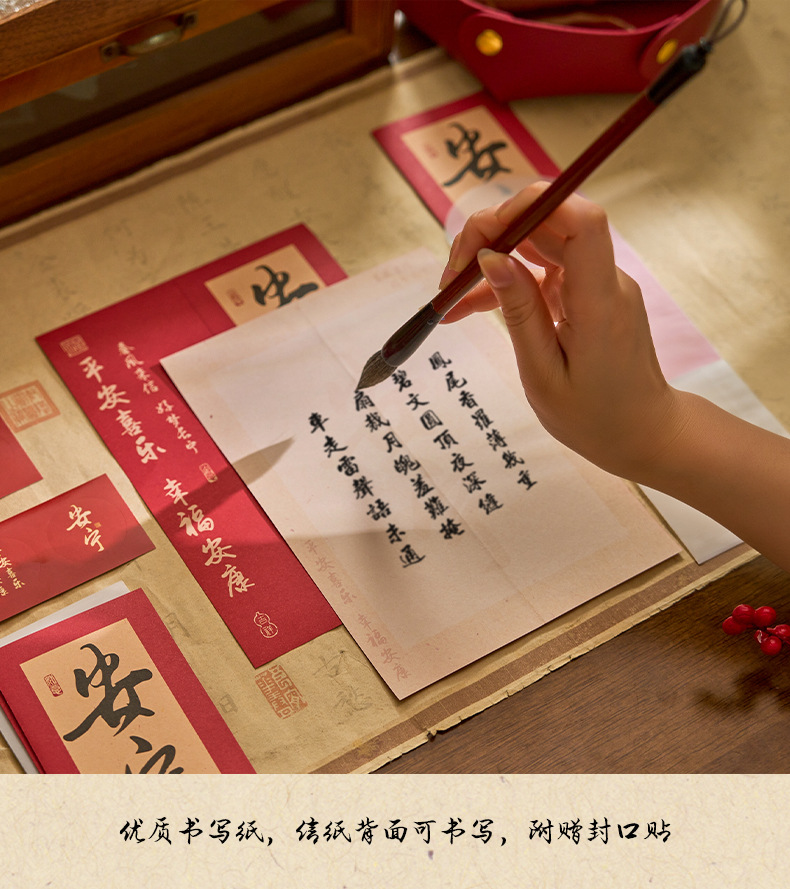 安
安
平安喜乐
春风来信
好梦长安
幸福安康
鳳尾香羅薄幾重
碧文圓頂夜深縫
扇裁月魄羞難掩
車走雷聲語未通
平安喜乐
幸福安康
安宁
安宁
优质书写纸，信纸背面可书写，附赠封口贴